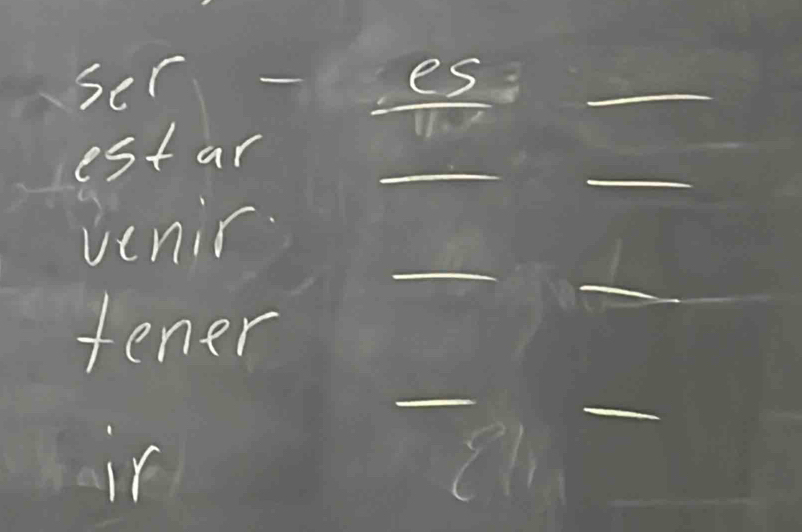 ser - es
estar
venir
tener
ir